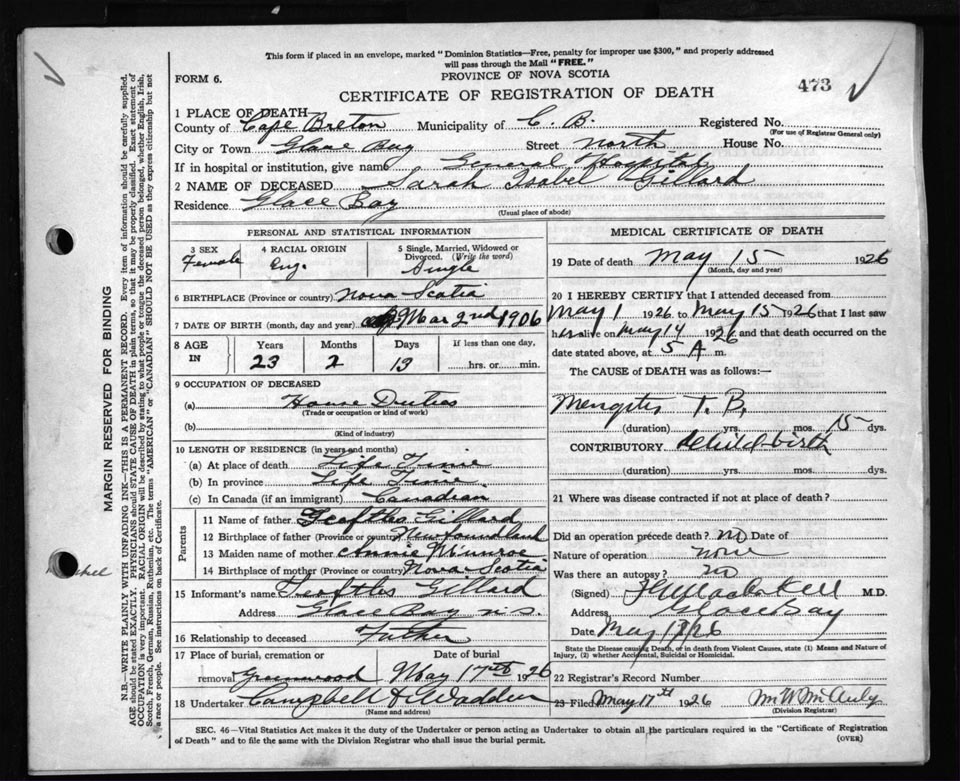 This form if placed in an envelope, marked "Dominion Statistics—Free, penalty for improper use $300," and properly addressed
will pass through the Mail "FREE."
PROVINCE OF NOVA SCOTIA
FORM 6.
473
CERTIFICATE OF REGISTRATION OF DEATH
1 PLACE OF DEATH
County of Cape Breton Municipality of C. B. Registered No.
(For use of Registrar General only)
City or Town Glace Bay Street North House No.
If in hospital or institution, give name General Hospital
2 NAME OF DECEASED Sarah Isabel Gillard
Residence Glace Bay
(Usual place of abode)
PERSONAL AND STATISTICAL INFORMATION
3 SEX Female
4 RACIAL ORIGIN Eng.
5 Single, Married, Widowed or
Divorced. (Write the word)
Single
6 BIRTHPLACE (Province or country) Nova Scotia
7 DATE OF BIRTH (month, day and year) Mar 2nd 1906
8 AGE IN
Years Months Days If less than one day,
23 2 13 hrs. or min.
9 OCCUPATION OF DECEASED
(a) House Duties
(Trade or occupation or kind of work)
(b)
(Kind of industry)
10 LENGTH OF RESIDENCE (in years and months)
(a) At place of death Life Time
(b) In province Life Time.
(c) In Canada (if an immigrant) Canadian
Parents
11 Name of father Gillard
12 Birthplace of father (Province or country) Newfoundland
13 Maiden name of mother Annie Munroe
14 Birthplace of mother (Province or country) Nova Scotia
15 Informant's name Gillard
Address Glace Bay N.S.
16 Relationship to deceased Father
17 Place of burial, cremation or Date of burial
removal Greenwood May 17th 1926
18 Undertaker Campbell & Wadden
(Name and address)
MEDICAL CERTIFICATE OF DEATH
19 Date of death May 15 1926
(Month, day and year)
20 I HEREBY CERTIFY that I attended deceased from
May 1 1926 to May 15 1926 that I last saw
her alive on May 14 1926 and that death occurred on
date stated above, at 5 A m.
The CAUSE of DEATH was as follows:—
Mengitis T. B.
(duration) yrs. mos. 15 dys.
CONTRIBUTORY Childbirth
(duration) yrs. mos. dys.
21 Where was disease contracted if not at place of death?
Did an operation precede death? no Date of
Nature of operation none
Was there an autopsy? no
(Signed) M.D.
Address Glace Bay
Date May 17/26
State the Disease causing Death, or in death from Violent Causes, state (1) Means and Nature of
Injury, (2) whether Accidental, Suicidal or Homicidal.
22 Registrar's Record Number
23 Filed May 17th 1926 Wm W McAuly
(Division Registrar)
SEC. 46—Vital Statistics Act makes it the duty of the Undertaker or person acting as Undertaker to obtain all the particulars required in the "Certificate of Registration
of Death" and to file the same with the Division Registrar who shall issue the burial permit.
(OVER)
MARGIN RESERVED FOR BINDING
N.B.—WRITE PLAINLY WITH UNFADING INK—THIS IS A PERMANENT RECORD. Every item of information should be carefully supplied.
AGE should be stated EXACTLY. PHYSICIANS should STATE CAUSE OF DEATH in plain terms, so that it may be properly classified. Exact statement of
OCCUPATION is very important. RACIAL ORIGIN will be described by stating to what people or tongue the deceased person belonged, whether English, Irish,
Scotch, French, German, Russian, Ruthenian, etc. The terms "AMERICAN" or "CANADIAN" SHOULD NOT BE USED as they express citizenship but not
a race or people. See instructions on back of Certificate.